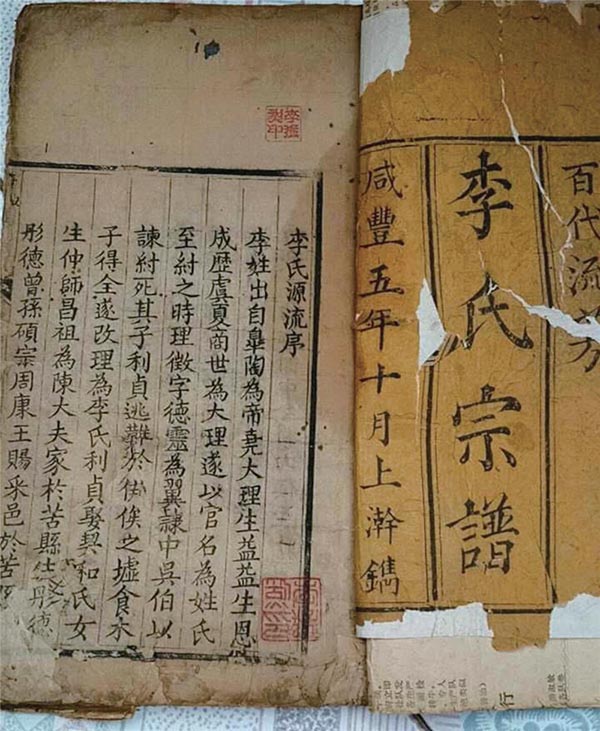 百代流芳
李氏宗譜
咸豐五年十月上澣鐫
李氏源流序
李姓出自皐陶為帝堯大理生益益生恩
成歷虞夏商世為大理遂以官名為姓氏
至紂之時理徵字德靈為翼隸中吳伯以
諫紂死其子利貞逃難於侯之墟食木
子得全遂改理為李氏利貞娶契和氏女
生仲師昌祖為陳大夫家於苦縣生彤德
彤德曾孫碩宗周康王賜采邑於苦
行